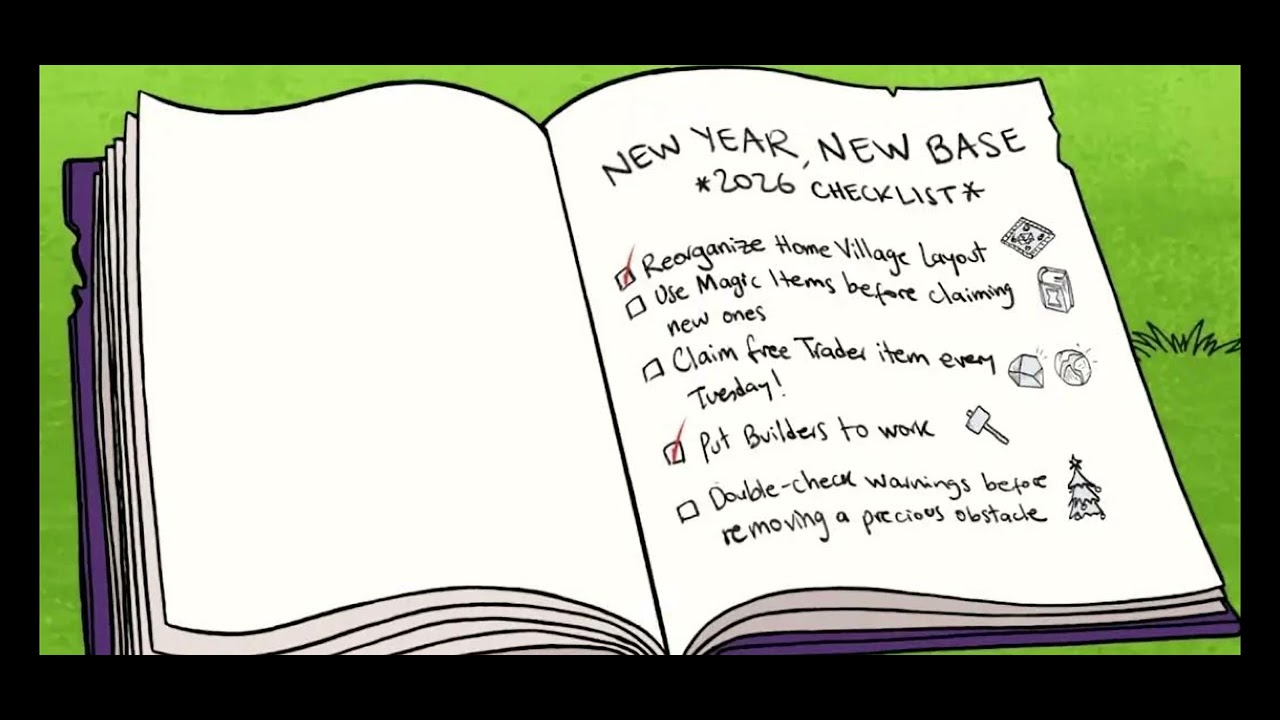 NEW YEAR, NEW BASE
*2026 CHECKLIST*
Reorganize Home Village Layout
Use Magic Items before claiming
new ones
Claim free Trader item every
Tuesday!
Put Builders to work
Double-check warnings before
removing a precious obstacle